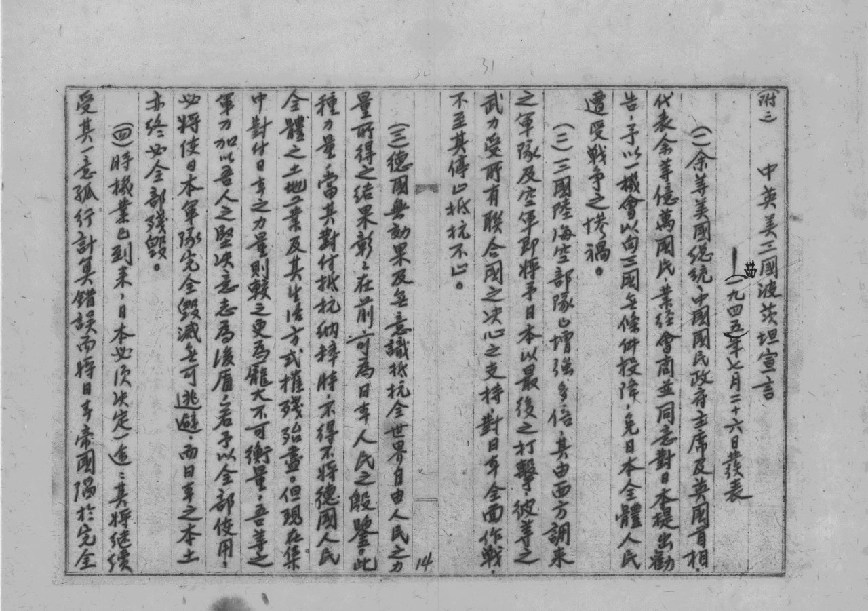 31
(附二) 中英美三國波茨坦宣言
——(一九四五年七月二十六日發表
(一)余等美國總統、中國國民政府主席及英國首相、
代表余等億萬國民、業經會商並同意對日本提出勸
告、予以一機會以向三國無條件投降、免日本全體人民
遭受戰爭之慘禍。
(二)三國陸海空部隊已增強多倍、其由西方調來
之軍隊及空軍即將予日本以最後之打擊、彼等之
武力受所有聯合國之決心之支持、對日本全面作戰、
不至其停止抵抗不止。
(三)德國無効果及無意識抵抗全世界自由人民之力
量所得之結果彰彰在前、可為日本人民之殷鑒。此
種力量、當其對付抵抗納粹時、不得不將德國人民
全體之土地工業及其生活方式摧殘殆盡。但現在集
中對付日本之力量則較之更為龐大不可衡量、吾等之
軍力加以吾人之堅決意志為後盾、若予以全部使用、
必將使日本軍隊完全毀滅無可逃避、而日本之本土
亦終必全部殘毀。
(四)時機業已到來、日本必須決定一途:其將繼續
受其一意孤行計算錯誤而將日本帝國陷於完全
14